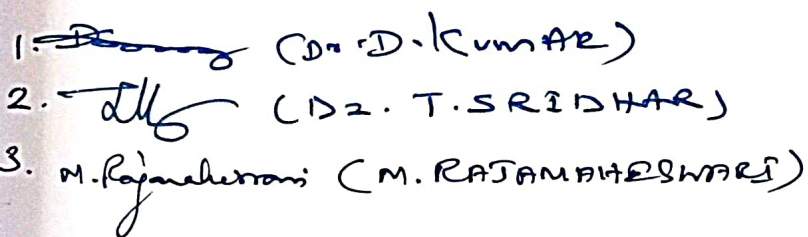 1. (Dr. D. KUMAR)
2. (Dr. T. SRIDHAR)
3. M. Rajamaheswari (M. RAJAMAHESWARI)